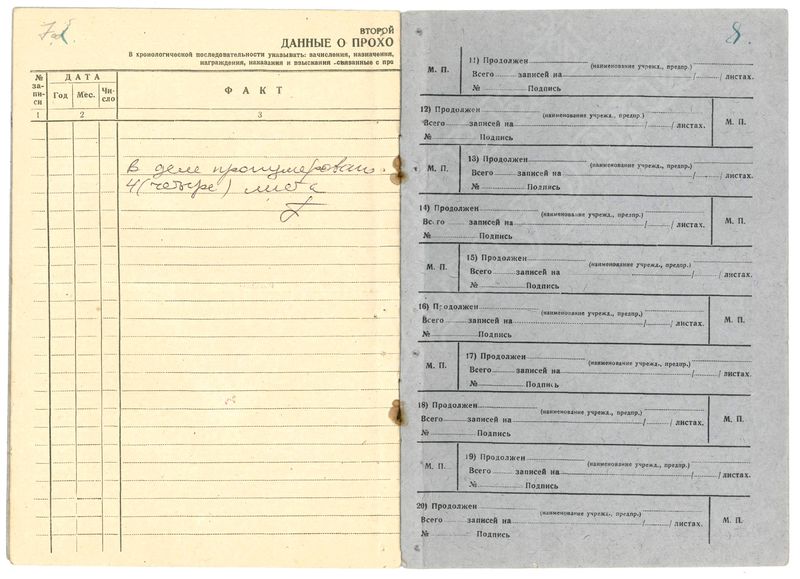 7
ВТОРОЙ
ДАННЫЕ О ПРОХО
В хронологической последовательности указывать: зачисления, назначения,
награждения, наказания и взыскания связанные с про
№ за- пи- си
ДАТА
Год Мес. Чи- сло
ФАКТ
1 2 3
В деле пронумеровано
4 (четыре) листа
8.
М. П.
11) Продолжен
(наименование учрежд., предпр.)
Всего записей на / / листах.
№ Подпись
12) Продолжен
(наименование учрежд., предпр.)
Всего записей на / / листах.
№ Подпись
М. П.
М. П.
13) Продолжен
(наименование учрежд., предпр.)
Всего записей на / / листах.
№ Подпись
14) Продолжен
(наименование учрежд., предпр.)
Всего записей на / / листах.
№ Подпись
М. П.
М. П.
15) Продолжен
(наименование учрежд., предпр.)
Всего записей на / / листах.
№ Подпись
16) Продолжен
(наименование учрежд., предпр.)
Всего записей на / / листах.
№ Подпись
М. П.
М. П.
17) Продолжен
(наименование учрежд., предпр.)
Всего записей на / / листах.
№ Подпись
18) Продолжен
(наименование учрежд., предпр.)
Всего записей на / / листах.
№ Подпись
М. П.
М. П.
19) Продолжен
(наименование учрежд., предпр.)
Всего записей на / / листах.
№ Подпись
20) Продолжен
(наименование учрежд., предпр.)
Всего записей на / / листах.
№ Подпись
М. П.